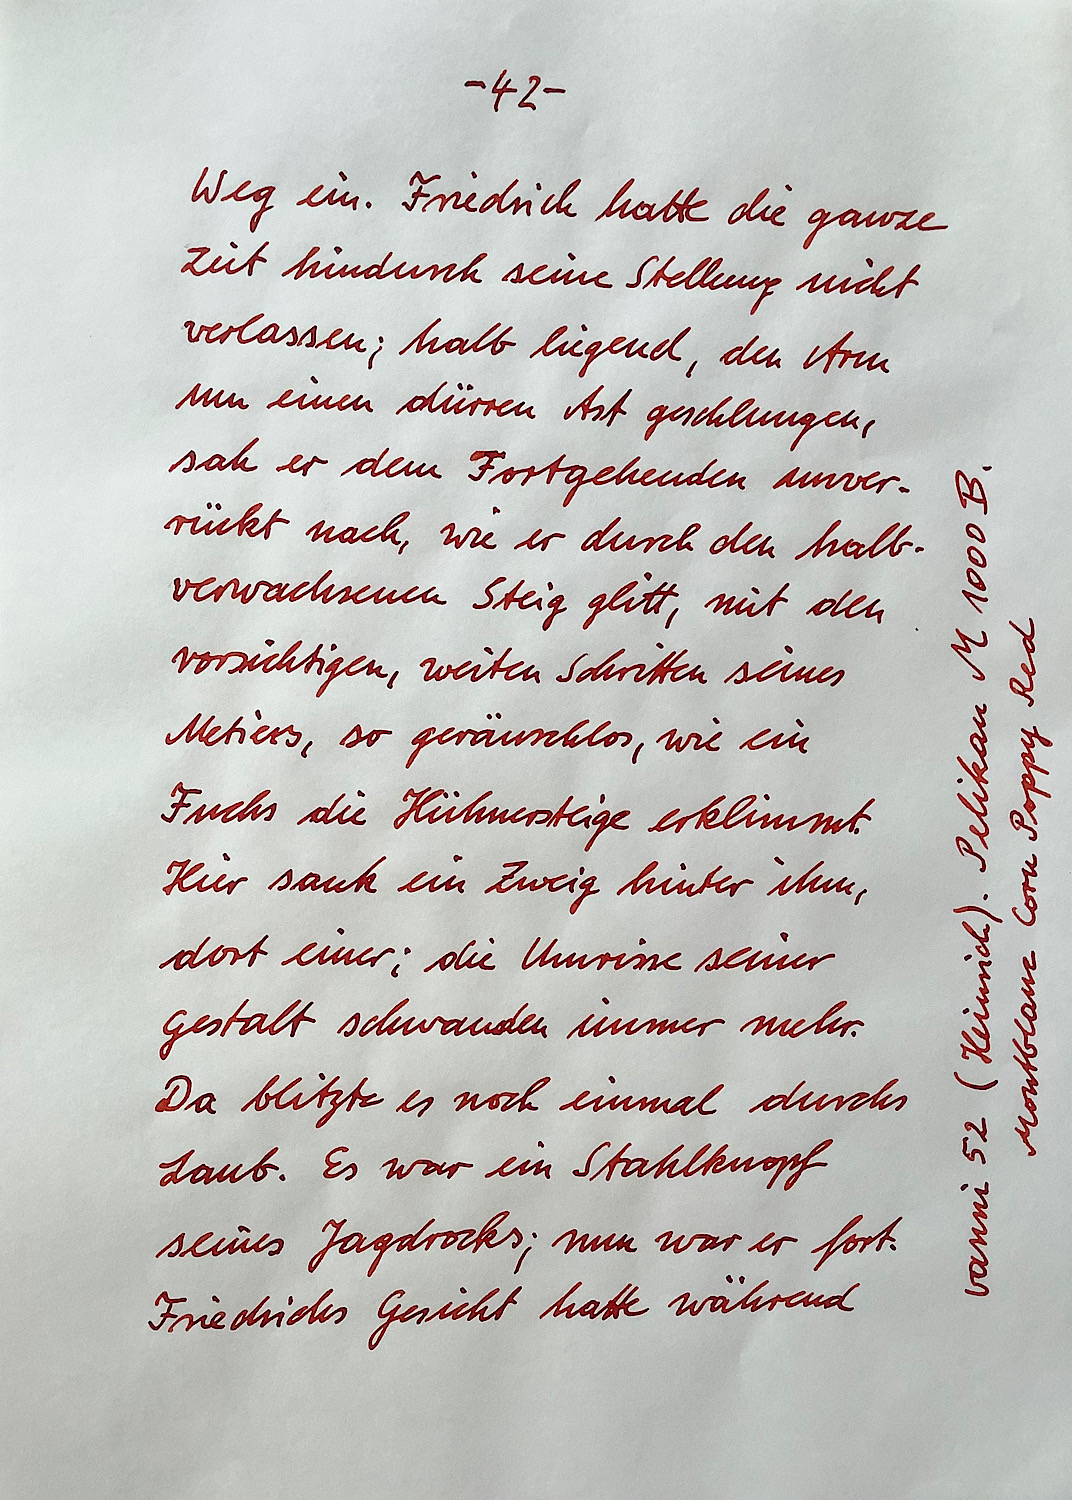 -42-
Weg ein. Friedrich hatte die ganze
Zeit hindurch seine Stellung nicht
verlassen; halb liegend, den Arm
um einen dürren Ast geschlungen,
sah er dem Fortgehenden unver-
rückt nach, wie er durch den halb-
verwachsenen Steig glitt, mit den
vorsichtigen, weiten Schritten seines
Metiers, so geräuschlos, wie ein
Fuchs die Hühnersteige erklimmt.
Hier sank ein Zweig hinter ihm,
dort einer; die Umrisse seiner
Gestalt schwanden immer mehr.
Da blitzte es noch einmal durchs
Laub. Es war ein Stahlknopf
seines Jagdrocks; nun war er fort.
Friedrichs Gesicht hatte während
vanni 52 (Heinrich). Pelikan M 1000 B.
Montblanc Corn Poppy Red